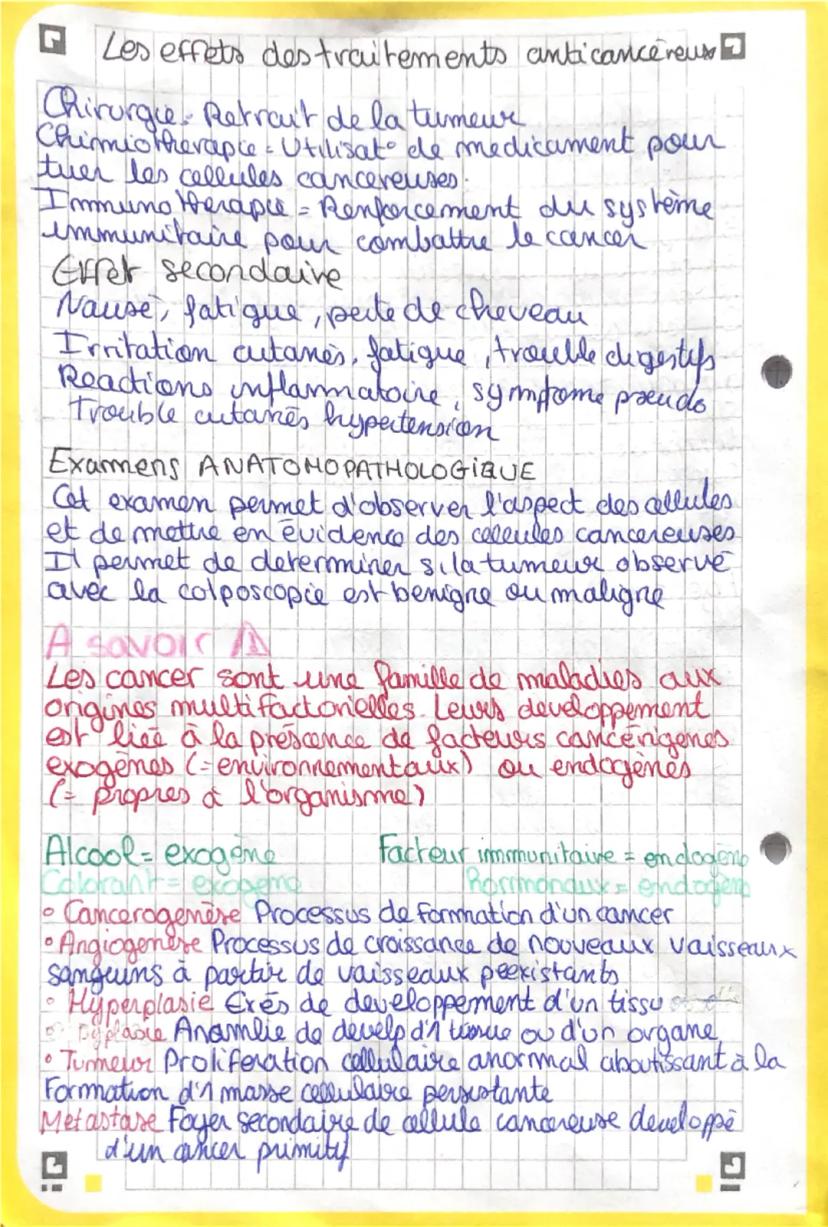 Les effets des traitements anticancéreux
Chirurgie = Retrait de la tumeur
Chimiotherapie = Utilisat° de medicament pour
tuer les cellules cancereuses.
Immunotherapie = Renforcement du système
immunitaire pour combattre le cancer
Effet secondaire
Nausé, fatigue, perte de cheveau
Irritation cutanés, fatigue, trouble digestifs
Reactions inflammatoire, symptome pseudo
Trouble cutanés hypertension
Examens ANATOMOPATHOLOGIQUE
Cet examen permet d'observer l'aspect des cellules
et de mettre en évidence des cellules cancereuses
Il permet de determiner si la tumeur observé
avec la colposcopie est benigne ou maligne
A savoir ⚠
Les cancer sont une famille de maladies aux
origines multifactorielles. Leurs developpement
est liée à la présence de facteurs cancérigenes
exogènes (= environnementaux) ou endogènes
(= propres à l'organisme)
Alcool = exogène Facteur immunitaire = endogène
Colorant = exogene Hormonaux = endogène
• Cancerogenèse Processus de formation d'un cancer
• Angiogenese Processus de croissance de nouveaux vaisseaux
sanguins à partir de vaisseaux peexistants
• Hyperplasie Exés de developpement d'un tissu
• Dyplasie Anamlie de develop d'1 tissue ou d'un organe
• Tumeur Proliferation cellulaire anormal aboutissant à la
formation d'1 masse cellulaire persistante
Métastase Foyer secondaire de cellule cancereuse developpé
d'un cancer primitif